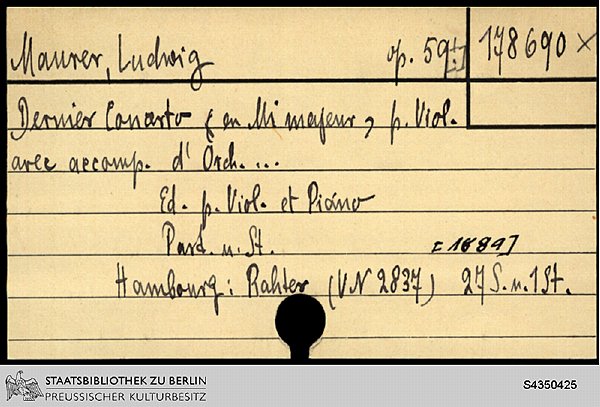 Maurer, Ludwig op. 59 178690 x
Dernier Concerto (en Mi majeur) p. Viol.
avec accomp. d'Orch. ...
Ed. p. Viol. et Piano
Part. u. St. [1889]
Hambourg: Rahter (VN 2837) 27 S. u. 1 St.
STAATSBIBLIOTHEK ZU BERLIN
PREUSSISCHER KULTURBESITZ
S4350425